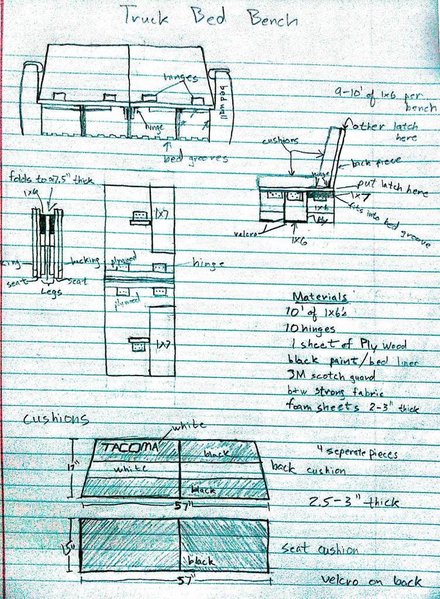 Truck Bed Bench
hinges
bed wall
hinge
bed grooves
9-10' of 1x6 per
bench
other latch
here
cushions
back piece
hinge
put latch here
1x7
fits into bed groove
1x6
velcro
1x6
folds to 7.5" thick
1x6
backing
seat
Legs
seat
1x7
plywood
hinge
plywood
1x7
Materials
10' of 1x6's
10 hinges
1 sheet of Ply Wood
black paint/bed liner
3M scotch guard
b+w strong fabric
foam sheets 2-3" thick
Cushions
white
TACOMA
black
4 seperate pieces
17"
white
back cushion
black
57"
2.5-3" thick
15"
seat cushion
black
57"
velcro on back